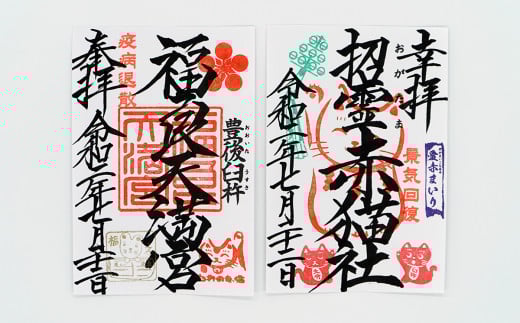 奉拝
疫病退散
福良天満宮
豊後臼杵
おおいた
うすき
令和二年七月二十一日
福
幸拝
招霊赤猫社
おがたま
愛赤まいり
景気回復
令和二年七月二十一日